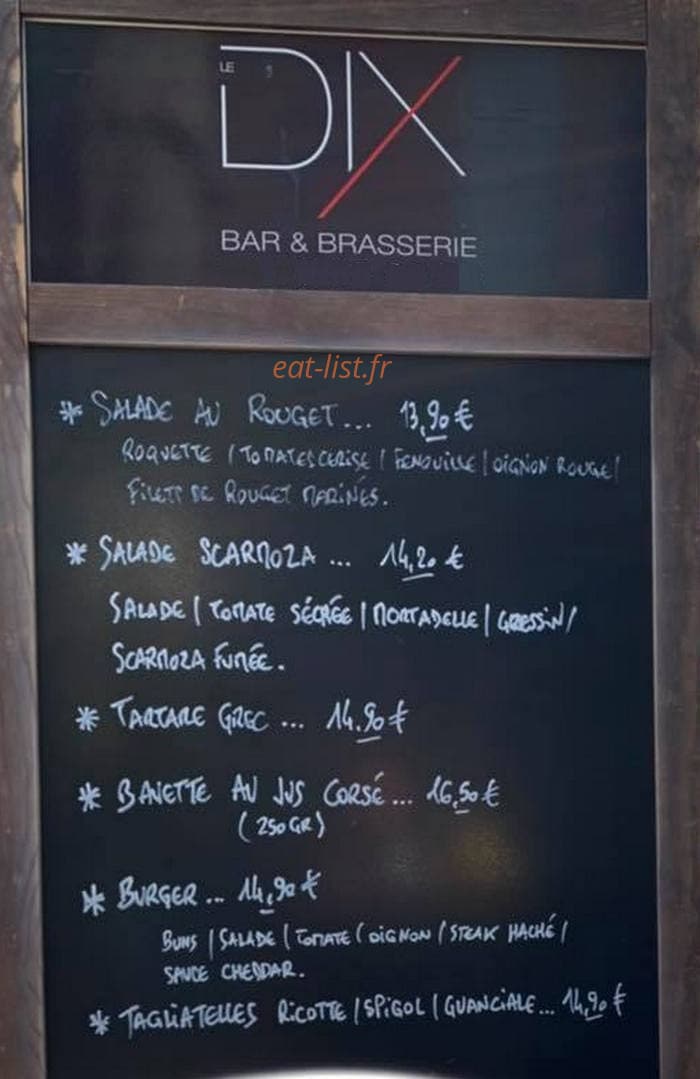 LE
DIX
BAR & BRASSERIE
eat-list.fr
* SALADE AU ROUGET... 13,90 €
ROQUETTE / TOMATES CERISE / FENOUILLE / OIGNON ROUGE /
FILETS DE ROUGET MARINÉS.
* SALADE SCARMOZA ... 14,20 €
SALADE / TOMATE SÉCRÉE / MORTADELLE / GRESSIN /
SCARMOZA FUMÉE.
* TARTARE GREC ... 14.90 €
* BAVETTE AU JUS CORSÉ... 16,50 €
(250 GR)
* BURGER ... 14,90 €
BUNS / SALADE / TOMATE / OIGNON / STEAK HACHÉ /
SAUCE CHEDDAR.
* TAGLIATELLES RICOTTE / SPIGOL / GUANCIALE... 14,90 €